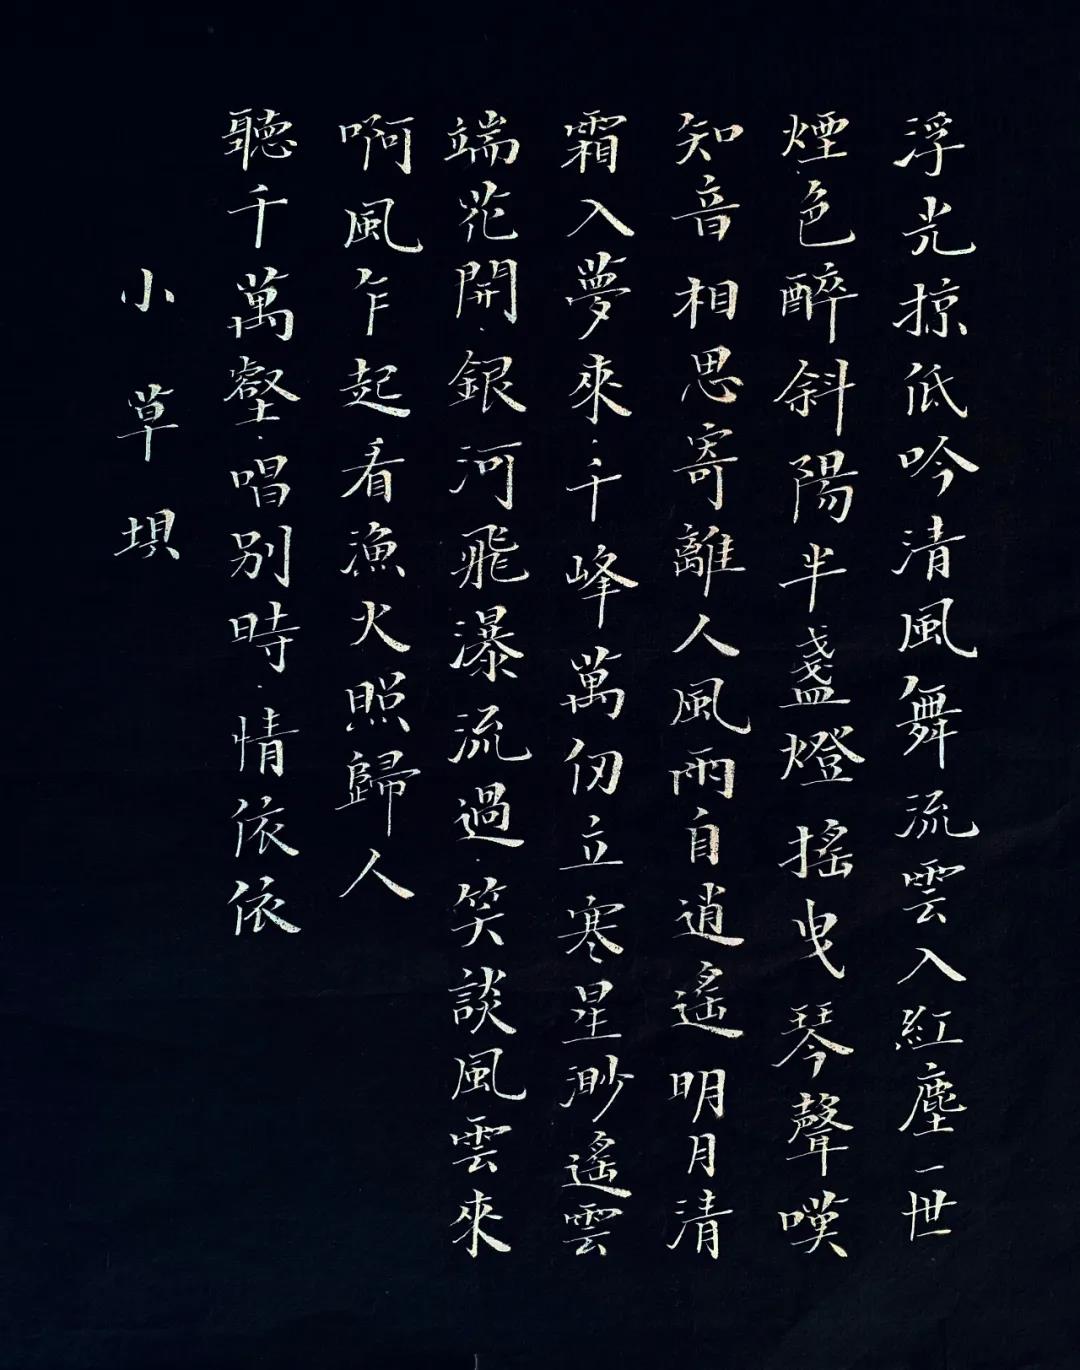 浮光掠低吟清風舞流雲入紅塵一世
煙色醉斜陽半盞燈搖曳琴聲嘆
知音相思寄離人風雨自逍遙明月清
霜入夢來千峰萬仞立寒星渺遙雲
端花開銀河飛瀑流過笑談風雲來
啊風乍起看漁火照歸人
聽千萬壑唱别時情依依
小草垻